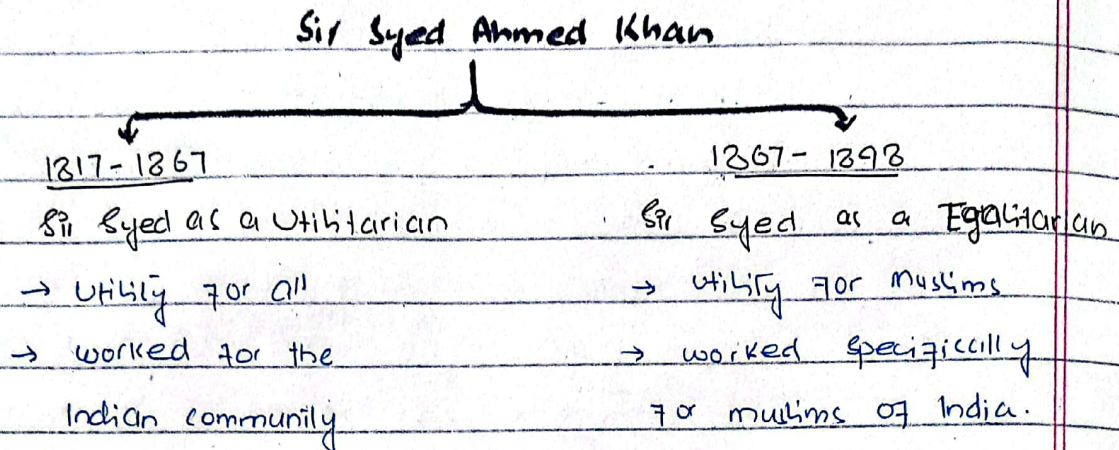 Sir Syed Ahmed Khan
1817-1867
Sir Syed as a Utilitarian
→ Utility for all
→ worked for the
Indian community
1867- 1898
Sir Syed as a Egalitarian
→ Utility for Muslims
→ worked specifically
for muslims of India.